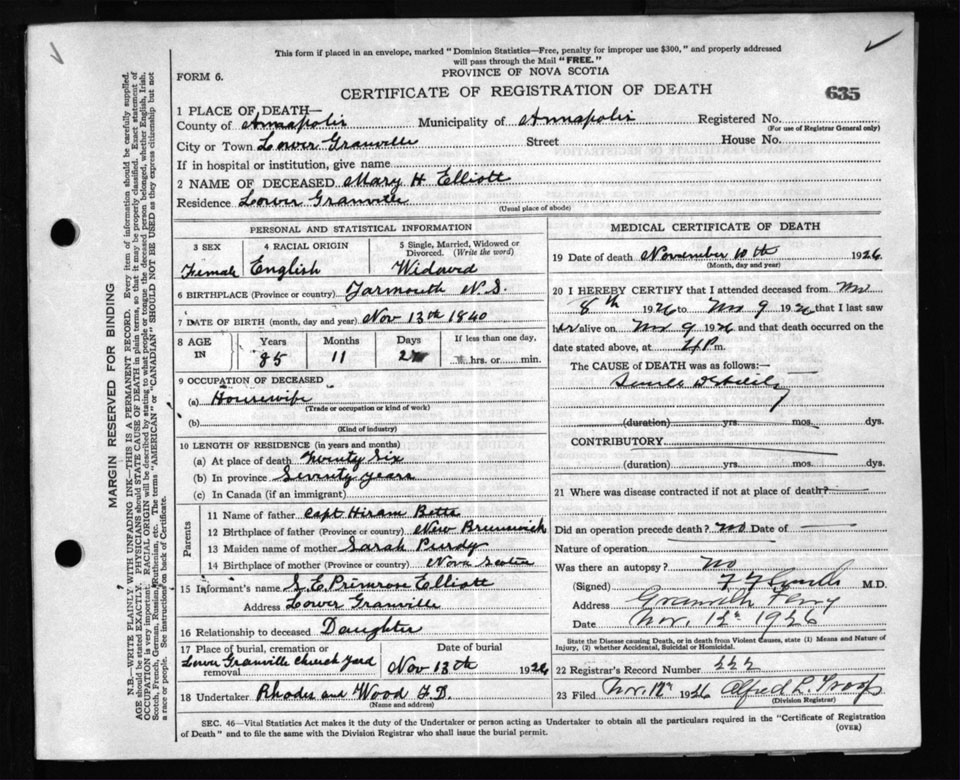 This form if placed in an envelope, marked "Dominion Statistics—Free, penalty for improper use $300," and properly addressed
will pass through the Mail "FREE."
FORM 6.
PROVINCE OF NOVA SCOTIA
CERTIFICATE OF REGISTRATION OF DEATH
635
1 PLACE OF DEATH—
County of Annapolis Municipality of Annapolis Registered No.
(For use of Registrar General only)
City or Town Lower Granville Street House No.
If in hospital or institution, give name
2 NAME OF DECEASED Mary H Elliott
Residence Lower Granville
(Usual place of abode)
PERSONAL AND STATISTICAL INFORMATION
3 SEX 4 RACIAL ORIGIN 5 Single, Married, Widowed or
Divorced. (Write the word)
Female English Widowed
6 BIRTHPLACE (Province or country) Yarmouth N.S.
7 DATE OF BIRTH (month, day and year) Nov 13th 1840
8 AGE IN Years Months Days If less than one day,
85 11 hrs. or min.
9 OCCUPATION OF DECEASED
(a) Housewife
(Trade or occupation or kind of work)
(b)
(Kind of industry)
10 LENGTH OF RESIDENCE (in years and months)
(a) At place of death Twenty Six
(b) In province Seventy years
(c) In Canada (if an immigrant)
Parents
11 Name of father Capt Hiram Betts
12 Birthplace of father (Province or country) New Brunswick
13 Maiden name of mother Sarah Purdy
14 Birthplace of mother (Province or country) Nova Scotia
15 Informant's name S. E. Primrose Elliott
Address Lower Granville
16 Relationship to deceased Daughter
17 Place of burial, cremation or removal Date of burial
Lower Granville Church Yard Nov 13th 1926
18 Undertaker Rhodes and Wood F.D.
(Name and address)
MEDICAL CERTIFICATE OF DEATH
19 Date of death November 10th 1926
(Month, day and year)
20 I HEREBY CERTIFY that I attended deceased from Nov
8th 1926 to Nov 9 1926 that I last saw
her alive on Nov 9 1926 and that death occurred on the
date stated above, at 4 P m.
The CAUSE OF DEATH was as follows:—
Senile Debility
(duration) yrs. mos. dys.
CONTRIBUTORY
(duration) yrs. mos. dys.
21 Where was disease contracted if not at place of death?
Did an operation precede death? No Date of
Nature of operation
Was there an autopsy? No
(Signed) M.D.
Address Granville Ferry
Date Nov. 12th 1926
State the Disease causing Death, or in death from Violent Causes, state (1) Means and Nature of
Injury, (2) whether Accidental, Suicidal or Homicidal.
22 Registrar's Record Number 222
23 Filed Nov. 12th 1926 Alfred L. Troop
(Division Registrar)
SEC. 46—Vital Statistics Act makes it the duty of the Undertaker or person acting as Undertaker to obtain all the particulars required in the "Certificate of Registration
of Death" and to file the same with the Division Registrar who shall issue the burial permit.
(OVER)
MARGIN RESERVED FOR BINDING
N.B.—WRITE PLAINLY WITH UNFADING INK—THIS IS A PERMANENT RECORD. Every item of information should be carefully supplied.
AGE should be stated EXACTLY. PHYSICIANS should STATE CAUSE OF DEATH in plain terms, so that it may be properly classified. Exact statement of
OCCUPATION is very important. RACIAL ORIGIN will be described by stating to what people or tongue the deceased person belonged, whether English, Irish,
Scotch, French, German, Russian, Ruthenian, etc. The terms "AMERICAN" or "CANADIAN" SHOULD NOT BE USED as they express citizenship but not
a race or people. See instructions on back of Certificate.